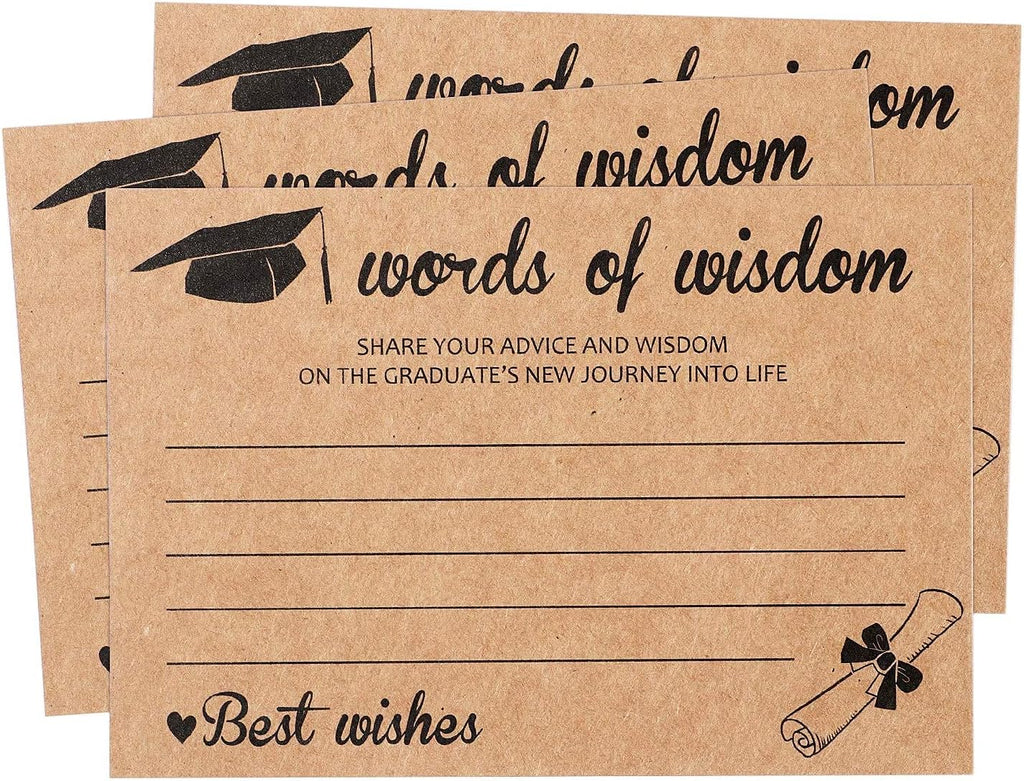 words of wisdom
words of wisdom
words of wisdom
SHARE YOUR ADVICE AND WISDOM
ON THE GRADUATE'S NEW JOURNEY INTO LIFE
Best wishes